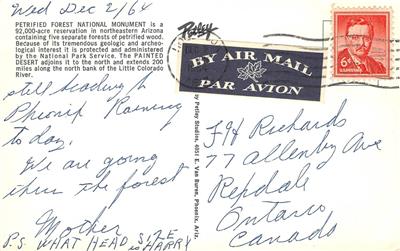 Wed Dec 2/64
PETRIFIED FOREST NATIONAL MONUMENT is a
92,000-acre reservation in northeastern Arizona
containing five separate forests of petrified wood.
Because of its tremendous geologic and archeo-
logical interest it is protected and administered
by the National Park Service. The PAINTED
DESERT adjoins it to the north and extends 200
miles along the north bank of the Little Colorado
River.
still heading to
Pheonix Raining
today.
We are going
thru the forest
Mother
P.S WHAT HEAD SIZE
is HARRY
Petley
BY AIR MAIL
PAR AVION
6¢
by Petley Studios, 4051 E. Van Buren, Phoenix, Ariz.
F H Richards
77 Allenby Ave
Rexdale
Ontario
Canada